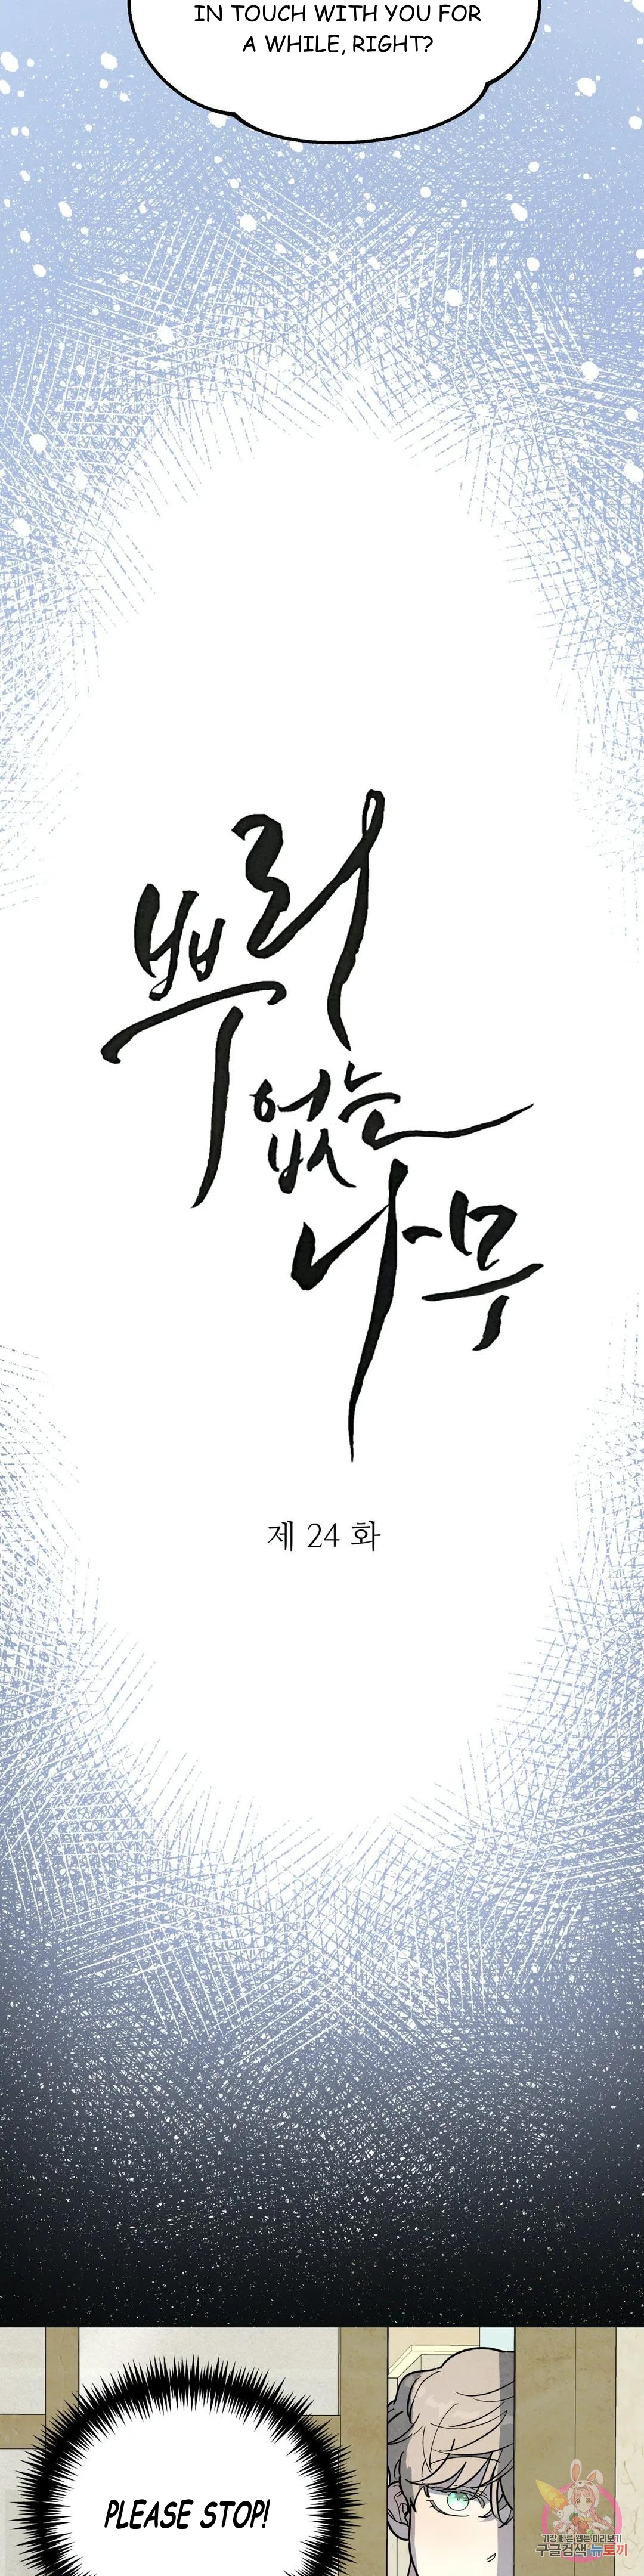 IN TOUCH WITH YOU FOR
A WHILE, RIGHT?
뿌리
없는
나무
제 24 화
PLEASE STOP!
가장 빠른 웹툰 미리보기
구글검색 뉴토끼